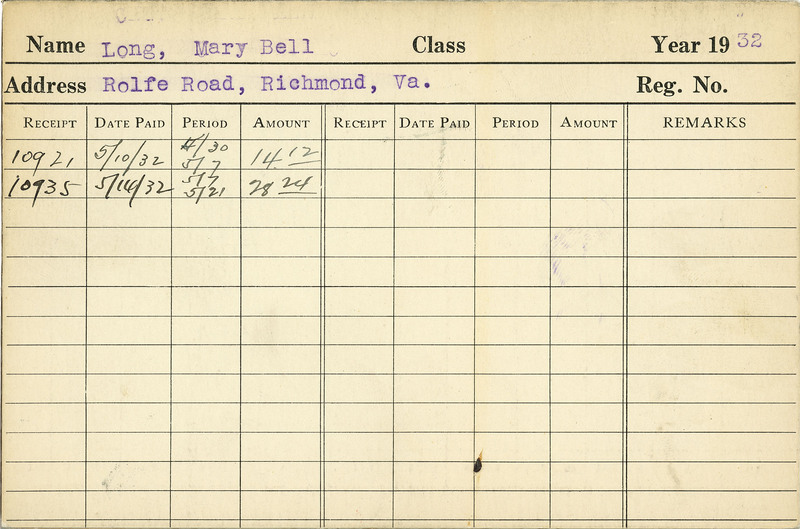 Name Long, Mary Bell Class Year 19 32
Address Rolfe Road, Richmond, Va. Reg. No.
RECEIPT DATE PAID PERIOD AMOUNT RECEIPT DATE PAID PERIOD AMOUNT REMARKS
10921 5/10/32 4/30 5/7 14.12
10935 5/14/32 5/7 5/21 28 24